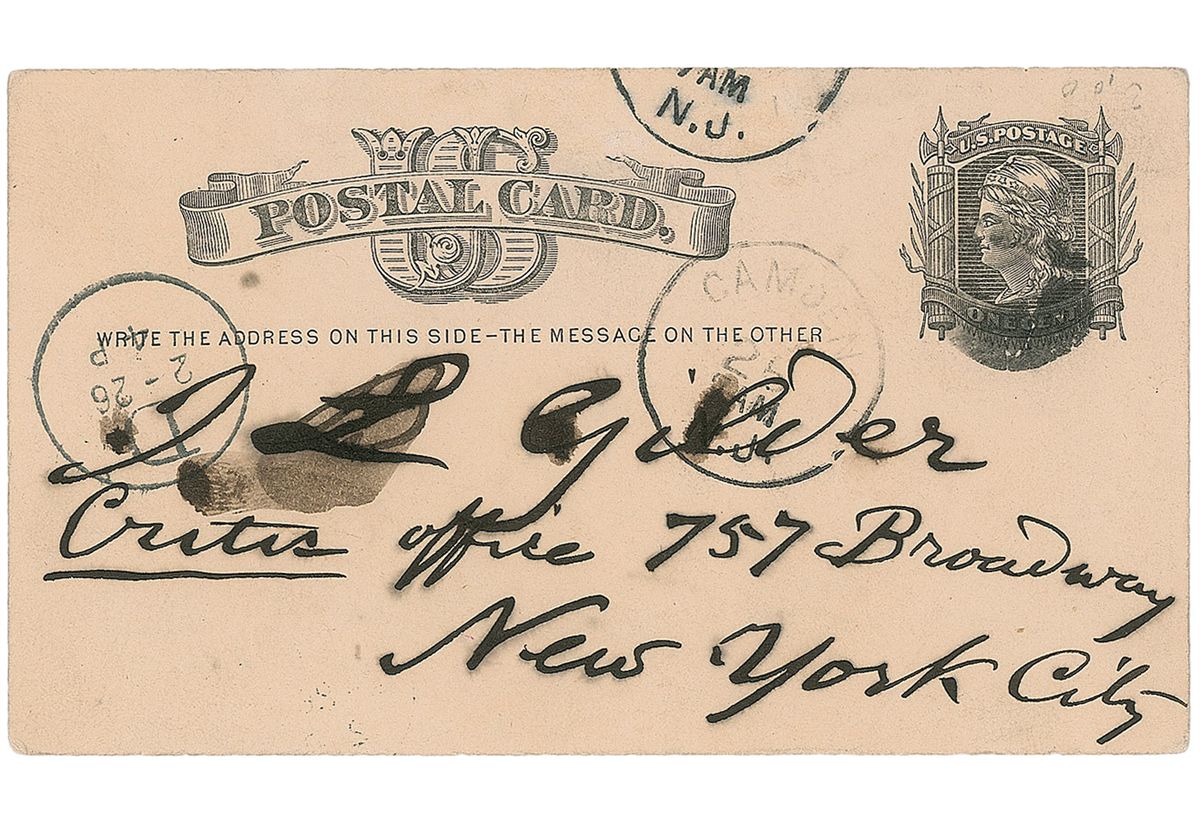 7AM
N.J.
U.S. POSTAGE
US
POSTAL CARD.
ONE CENT
WRITE THE ADDRESS ON THIS SIDE–THE MESSAGE ON THE OTHER
CAMD
AM
N.J.
2-26
J L Gilder
Critic office 757 Broadway
New York City